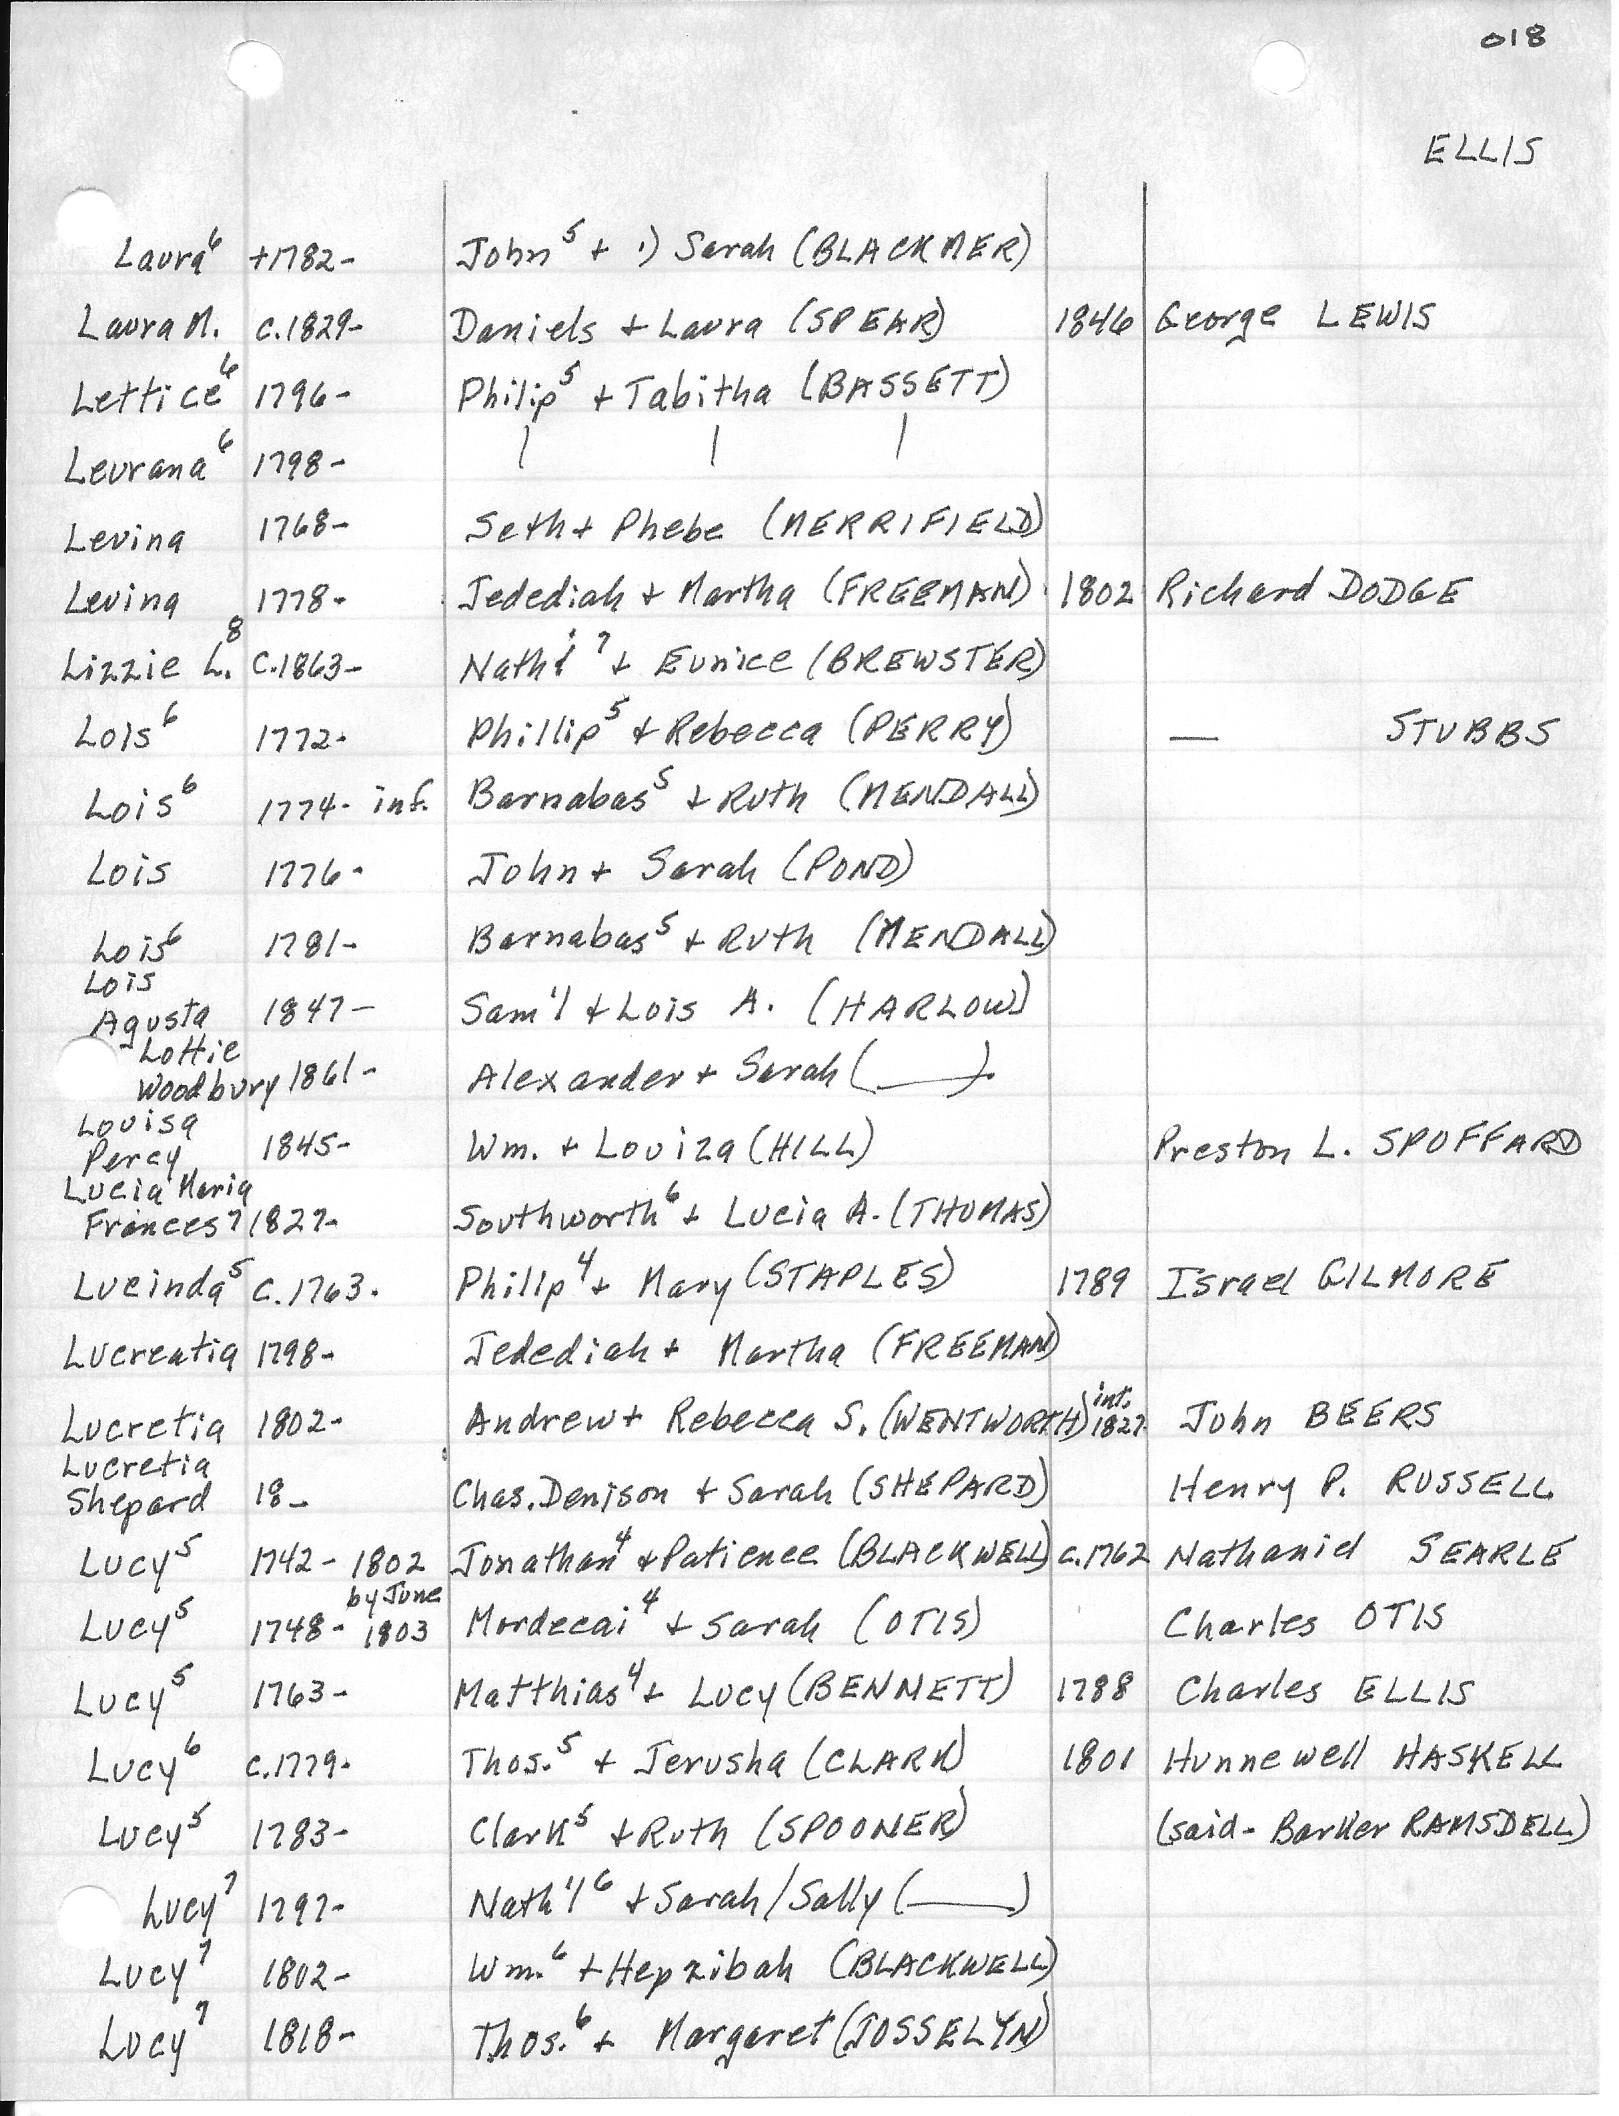 018
ELLIS
Laura⁶ +1782- John⁵ + 1) Sarah (BLACKMER)
Laura M. c.1829- Daniels + Laura (SPEAR) 1846 George LEWIS
Lettice⁶ 1796- Philip⁵ + Tabitha (BASSETT)
Levrana⁶ 1798- | | |
Levina 1768- Seth + Phebe (MERRIFIELD)
Levina 1778- Jedediah + Martha (FREEMAN) 1802 Richard DODGE
Lizzie L.⁸ c.1863- Nath'l⁷ + Eunice (BREWSTER)
Lois⁶ 1772- Phillip⁵ + Rebecca (PERRY) — STUBBS
Lois⁶ 1774- inf. Barnabas⁵ + Ruth (MENDALL)
Lois 1776- John + Sarah (POND)
Lois⁶ 1781- Barnabas⁵ + Ruth (MENDALL)
Lois
Agusta 1847- Sam'l + Lois A. (HARLOW)
Lottie
Woodbury 1861- Alexander + Sarah (___).
Louisa
Percy 1845- Wm. + Louiza (HILL) Preston L. SPOFFARD
Lucia Maria
Frances⁷ 1827- Southworth⁶ + Lucia A. (THOMAS)
Lucinda⁵ c.1763. Philip⁴ + Mary (STAPLES) 1789 Israel GILMORE
Lucreatia 1798- Jedediah + Martha (FREEMAN)
int.
Lucretia 1802- Andrew + Rebecca S. (WENTWORTH) 1827 John BEERS
Lucretia
Shepard 18_ Chas. Denison + Sarah (SHEPARD) Henry P. RUSSELL
Lucy⁵ 1742- 1802 Jonathan⁴ + Patience (BLACKWELL) c.1762 Nathaniel SEARLE
by June
Lucy⁵ 1748- 1803 Mordecai⁴ + Sarah (OTIS) Charles OTIS
Lucy⁵ 1763- Matthias⁴ + Lucy (BENNETT) 1788 Charles ELLIS
Lucy⁶ c.1779- Thos.⁵ + Jerusha (CLARK) 1801 Hunnewell HASKELL
Lucy⁵ 1783- Clark⁵ + Ruth (SPOONER) (said- Barker RAMSDELL)
Lucy⁷ 1797- Nath'l⁶ + Sarah/Sally (___)
Lucy⁷ 1802- Wm.⁶ + Hepzibah (BLACKWELL)
Lucy⁷ 1818- Thos.⁶ + Margaret (JOSSELYN)